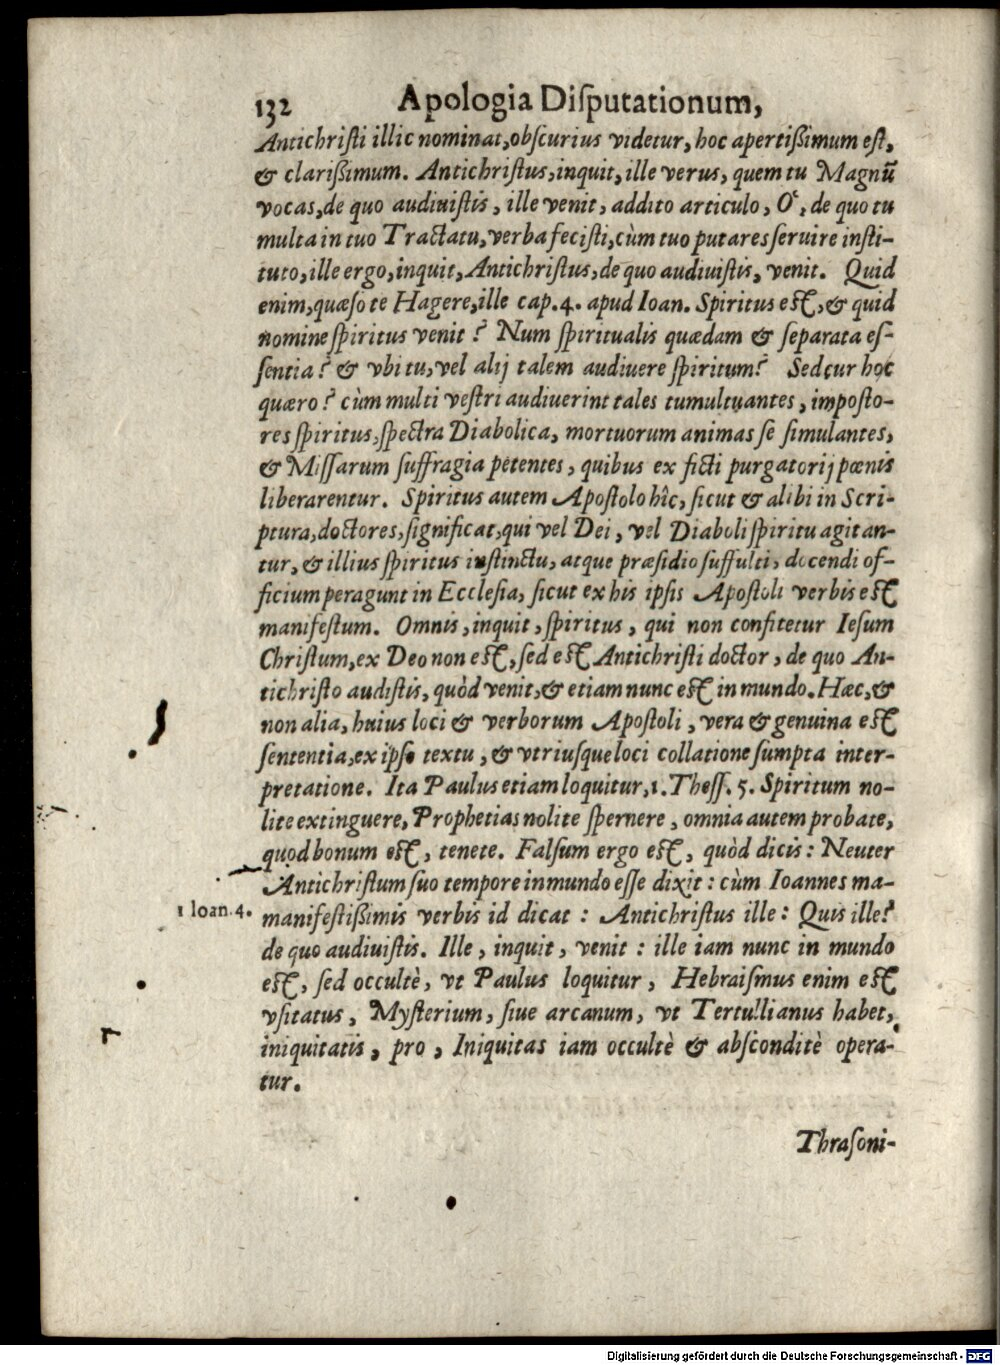 132 Apologia Disputationum,
Antichristi illic nominat, obscurius videtur, hoc apertißimum est,
& clarißimum. Antichristus, inquit, ille verus, quem tu Magnũ
vocas, de quo audiuistis, ille venit, addito articulo, Ὁ, de quo tu
multa in tuo Tractatu, verba fecisti, cùm tuo putares seruire insti-
tuto, ille ergo, inquit, Antichristus, de quo audiuistis, venit. Quid
enim, quæso te Hagere, ille cap. 4. apud Ioan. Spiritus est, & quid
nomine spiritus venit? Num spiritualis quædam & separata es-
sentia? & vbi tu, vel alij talem audiuere spiritum? Sed cur hoc
quæro? cùm multi vestri audiuerint tales tumultuantes, imposto-
res spiritus, spectra Diabolica, mortuorum animas se simulantes,
& Missarum suffragia petentes, quibus ex ficti purgatorij pœnis
liberarentur. Spiritus autem Apostolo hîc, sicut & alibi in Scri-
ptura, doctores, significat, qui vel Dei, vel Diaboli spiritu agitan-
tur, & illius spiritus instinctu, atque præsidio suffulti, docendi of-
ficium peragunt in Ecclesia, sicut ex his ipsis Apostoli verbis est
manifestum. Omnis, inquit, spiritus, qui non confitetur Iesum
Christum, ex Deo non est, sed est Antichristi doctor, de quo An-
tichristo audistis, quòd venit, & etiam nunc est in mundo. Hæc, &
non alia, huius loci & verborum Apostoli, vera & genuina est
sententia, ex ipso textu, & vtriusque loci collatione sumpta inter-
pretatione. Ita Paulus etiam loquitur, 1. Thess. 5. Spiritum no-
lite extinguere, Prophetias nolite spernere, omnia autem probate,
quod bonum est, tenete. Falsum ergo est, quòd dicis: Neuter
Antichristum suo tempore in mundo esse dixit: cùm Ioannes ma-
1 Ioan. 4. manifestißimis verbis id dicat: Antichristus ille: Quis ille?
de quo audiuistis. Ille, inquit, venit: ille iam nunc in mundo
est, sed occultè, vt Paulus loquitur, Hebraismus enim est
vsitatus, Mysterium, siue arcanum, vt Tertullianus habet,
iniquitatis, pro, Iniquitas iam occultè & absconditè opera-
tur.
Thrasoni-
Digitalisierung gefördert durch die Deutsche Forschungsgemeinschaft - DFG